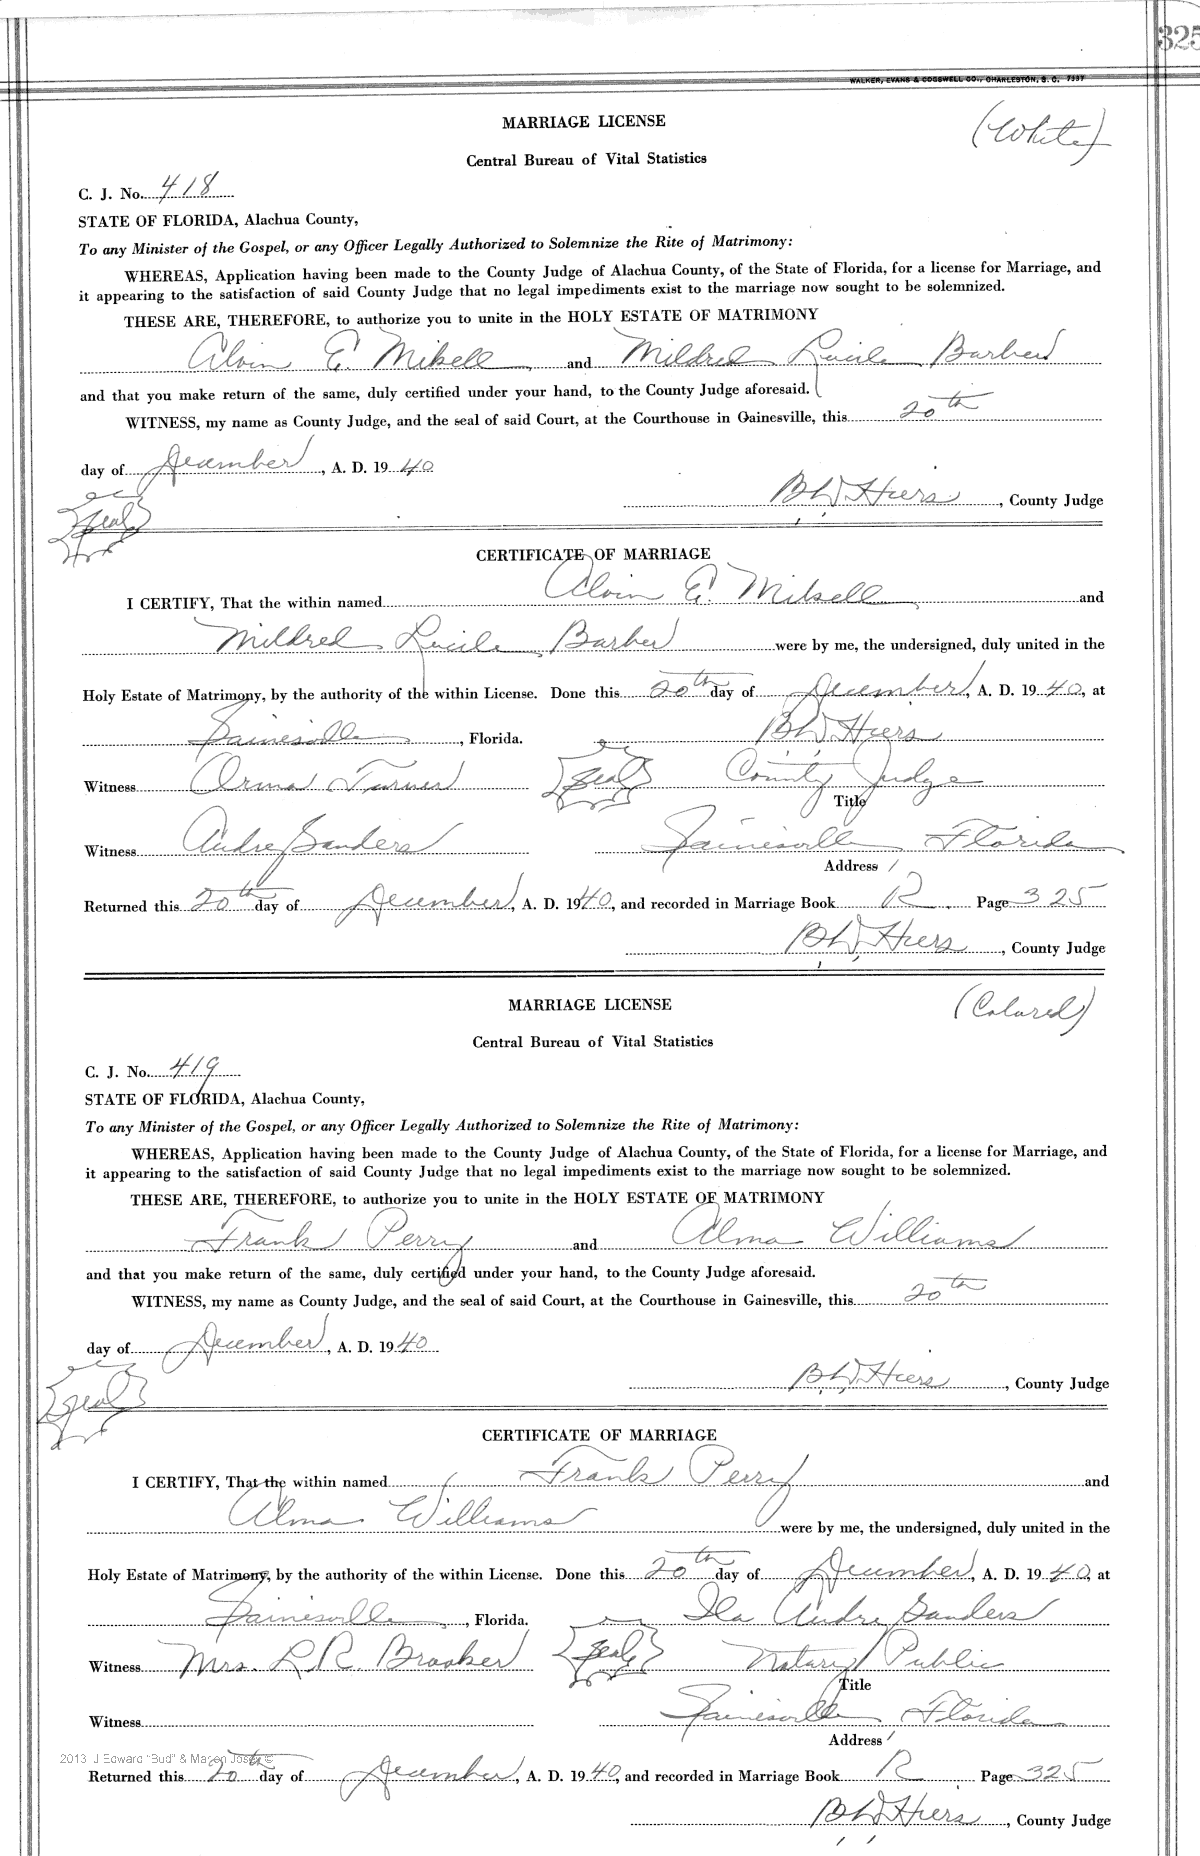 325
WALKER, EVANS & COGSWELL CO., CHARLESTON, S. C. 7337
MARRIAGE LICENSE
(White)
Central Bureau of Vital Statistics
C. J. No. 418
STATE OF FLORIDA, Alachua County,
To any Minister of the Gospel, or any Officer Legally Authorized to Solemnize the Rite of Matrimony:
WHEREAS, Application having been made to the County Judge of Alachua County, of the State of Florida, for a license for Marriage, and
it appearing to the satisfaction of said County Judge that no legal impediments exist to the marriage now sought to be solemnized.
THESE ARE, THEREFORE, to authorize you to unite in the HOLY ESTATE OF MATRIMONY
Alvin E. Mikell and Mildred Lucile Barber
and that you make return of the same, duly certified under your hand, to the County Judge aforesaid.
WITNESS, my name as County Judge, and the seal of said Court, at the Courthouse in Gainesville, this 20th
day of December, A. D. 1940
BW Hiers, County Judge
Seal
CERTIFICATE OF MARRIAGE
I CERTIFY, That the within named Alvin E. Mikell and
Mildred Lucile Barber were by me, the undersigned, duly united in the
Holy Estate of Matrimony, by the authority of the within License. Done this 20th day of December, A. D. 1940, at
Gainesville, Florida. BW Hiers
Witness Orma Turner Seal County Judge
Title
Witness Audrey Sanders Gainesville, Florida
Address
Returned this 20th day of December, A. D. 1940, and recorded in Marriage Book R. Page 325
BW Hiers, County Judge
MARRIAGE LICENSE
(Colored)
Central Bureau of Vital Statistics
C. J. No. 419
STATE OF FLORIDA, Alachua County,
To any Minister of the Gospel, or any Officer Legally Authorized to Solemnize the Rite of Matrimony:
WHEREAS, Application having been made to the County Judge of Alachua County, of the State of Florida, for a license for Marriage, and
it appearing to the satisfaction of said County Judge that no legal impediments exist to the marriage now sought to be solemnized.
THESE ARE, THEREFORE, to authorize you to unite in the HOLY ESTATE OF MATRIMONY
Frank Perry and Alma Williams
and that you make return of the same, duly certified under your hand, to the County Judge aforesaid.
WITNESS, my name as County Judge, and the seal of said Court, at the Courthouse in Gainesville, this 20th
day of December, A. D. 1940
BW Hiers, County Judge
Seal
CERTIFICATE OF MARRIAGE
I CERTIFY, That the within named Frank Perry and
Alma Williams were by me, the undersigned, duly united in the
Holy Estate of Matrimony, by the authority of the within License. Done this 20th day of December, A. D. 1940, at
Gainesville, Florida. Ila Audrey Sanders
Witness Mrs. L.R. Brooker Seal Notary Public
Title
Witness Gainesville, Florida
Address
2013 J Edward "Bud" & Mason Josey ©
Returned this 20th day of December, A. D. 1940, and recorded in Marriage Book R Page 325
BW Hiers, County Judge